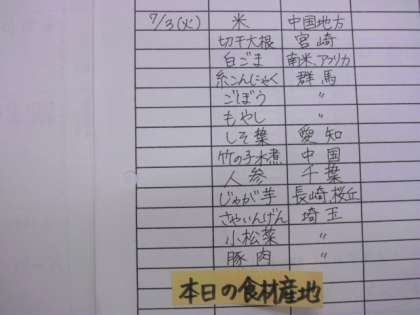 7/3(火) 米 中国地方
切干大根 宮崎
白ごま 南米、アフリカ
糸こんにゃく 群馬
ごぼう 〃
もやし 〃
しそ葉 愛知
竹の子水煮 中国
人参 千葉
じゃが芋 長崎、桜丘
さやいんげん 埼玉
小松菜 〃
豚肉 〃
本日の食材産地